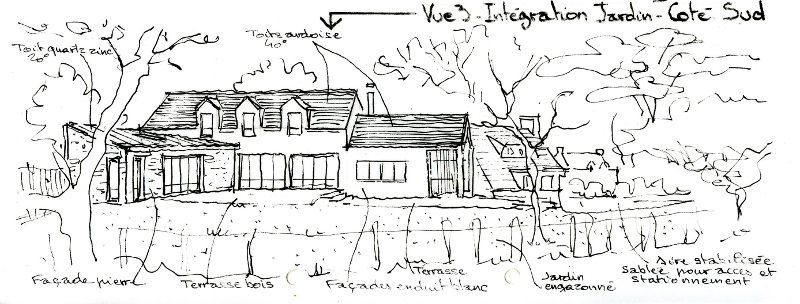 Vue 3 - Intégration Jardin - Coté Sud
Toit quartz zinc
20°
Toits ardoise
40°
Façade pierre
Terrasse bois
Façades enduit blanc
Terrasse
Jardin
engazonné
Aire stabilisée
sablée pour accès et
stationnement